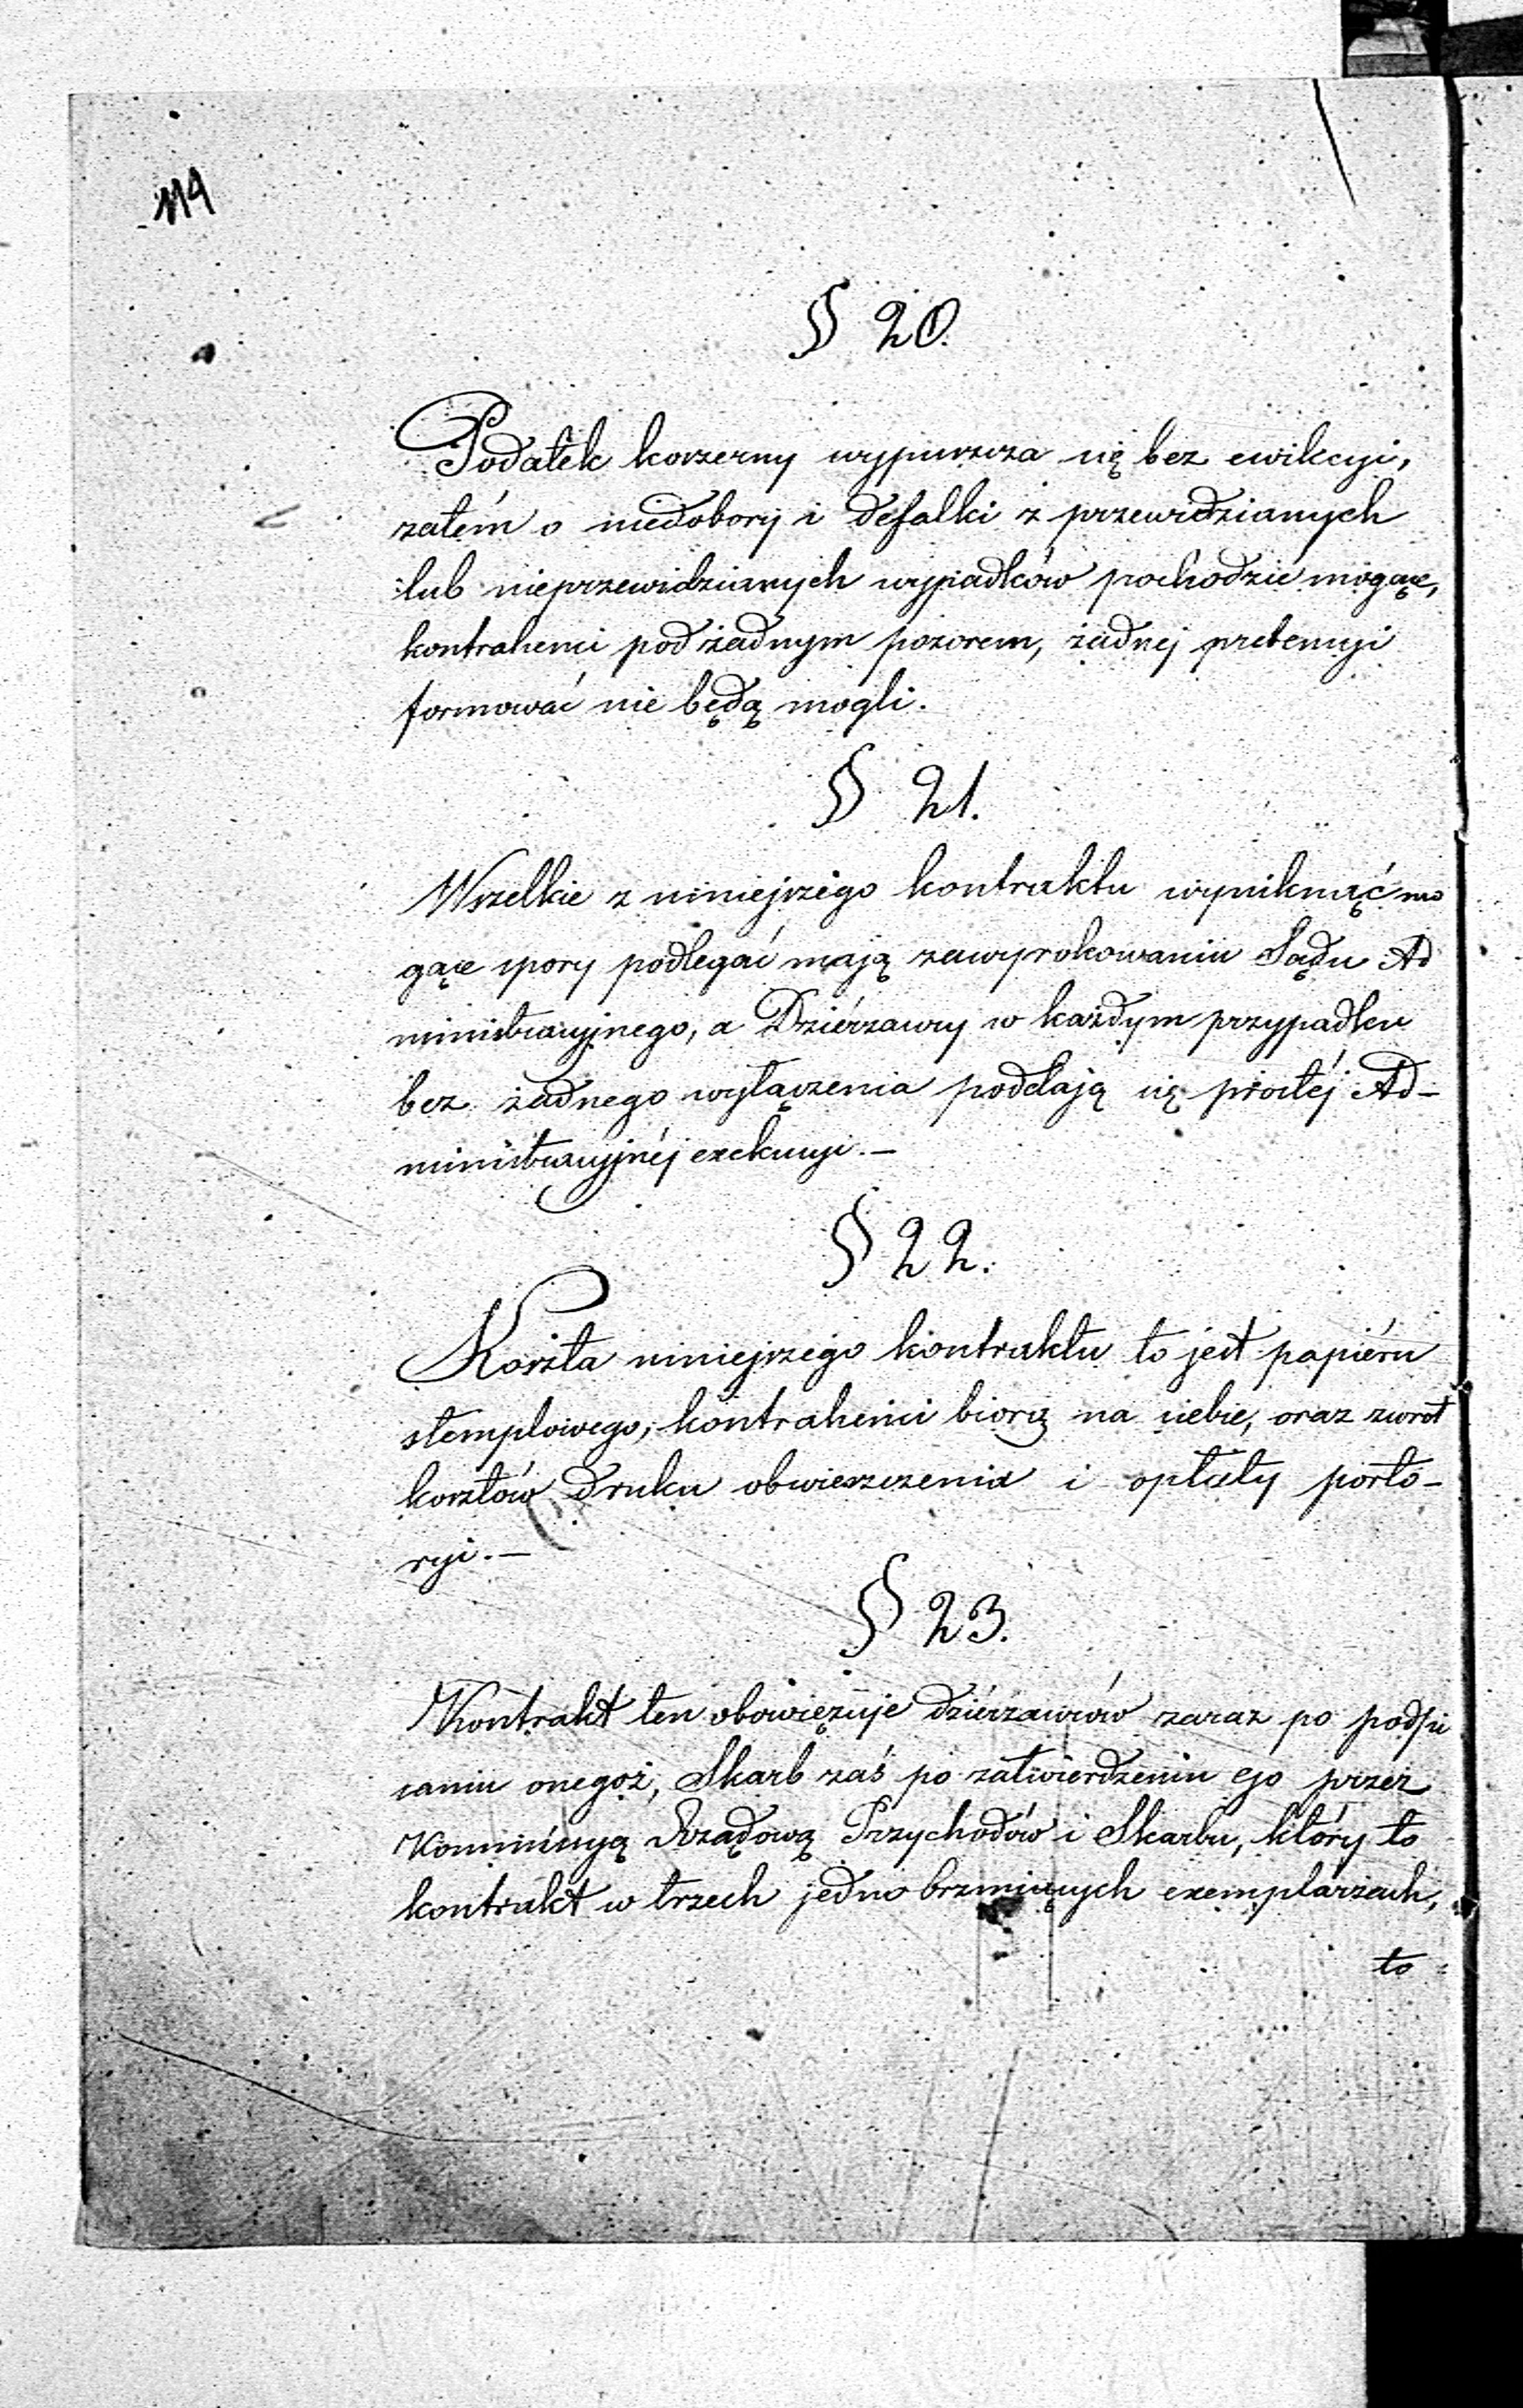 119
§ 20.
Podatek koszerny wypuszcza się bez ewikcyi,
zatém o niedobory i defalki z przewidzianych
lub nieprzewidzianych wypadków pochodzić mogące,
kontrahenci pod żadnym pozorem, żadnej pretensyi
formować nie będą mogli.
§ 21.
Wszelkie z niniejszego kontraktu wyniknąć mo
gące spory podlegać mają zawyrokowaniu Sądu Ad
ministracyjnego, a Dzierżawcy w każdym przypadku
bez żadnego wyłączenia poddają się prostéj Ad-
ministracyjnéj exekucyi. —
§ 22.
Koszta niniejszego kontraktu to jest papiéru
stemplowego, kontrahenci biorą na siebie, oraz zwrot
kosztów druku obwieszczenia i opłaty porto-
ryi. —
§ 23.
Kontrakt ten obowięzuje dziérzawców zaraz po podpi
saniu onegoż, Skarb zaś po zatwierdzeniu ego przez
Kommissyą Rządową Przychodów i Skarbu, który to
kontrakt w trzech jedno brzmiących exemplarzach,
to